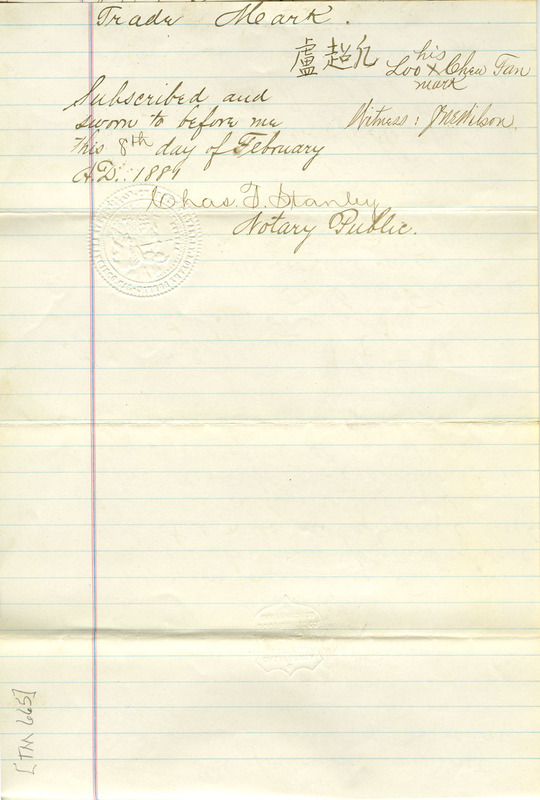 Trade Mark.
盧超允 Loo his x mark Chew Tan
Subscribed and
sworn to before me Witness:
this 8th day of February
A.D. 1881
Chas. F. Hanley
Notary Public.
[TM 665]